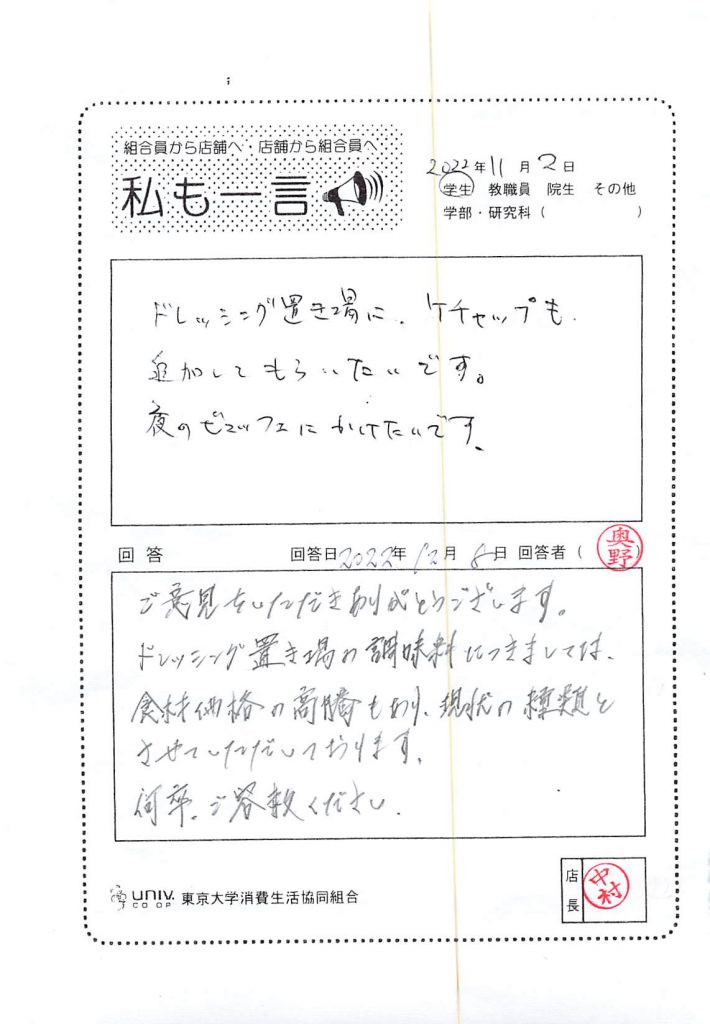 組合員から店舗へ・店舗から組合員へ
私も一言
2022年11月2日
学生 教職員 院生 その他
学部・研究科（ ）
ドレッシング置き場に、ケチャップも、
追加してもらいたいです。
夜のビュッフェにかけたいです。
回答 回答日2022年12月8日 回答者（奥野）
ご意見をいただきありがとうございます。
ドレッシング置き場の調味料につきましては、
食材価格の高騰もあり、現状の種類と
させていただいております。
何卒、ご容赦ください。
UNIV. CO-OP 東京大学消費生活協同組合
店長 中村